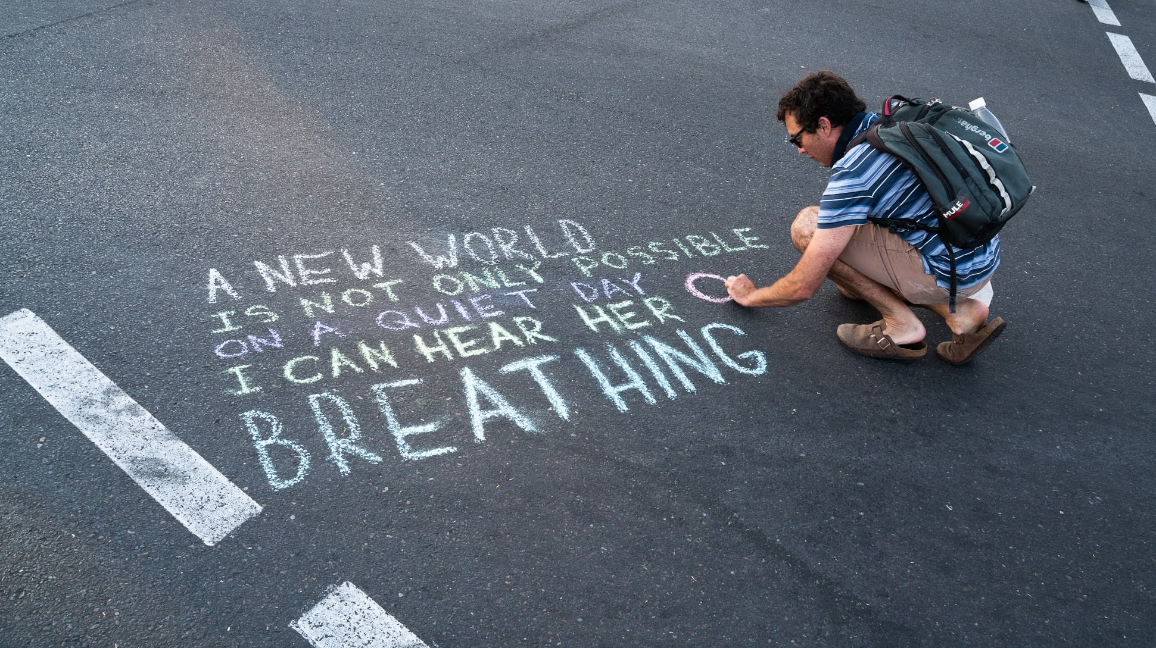 A NEW WORLD
IS NOT ONLY POSSIBLE
ON A QUIET DAY
I CAN HEAR HER
BREATHING
berghaus
MULE